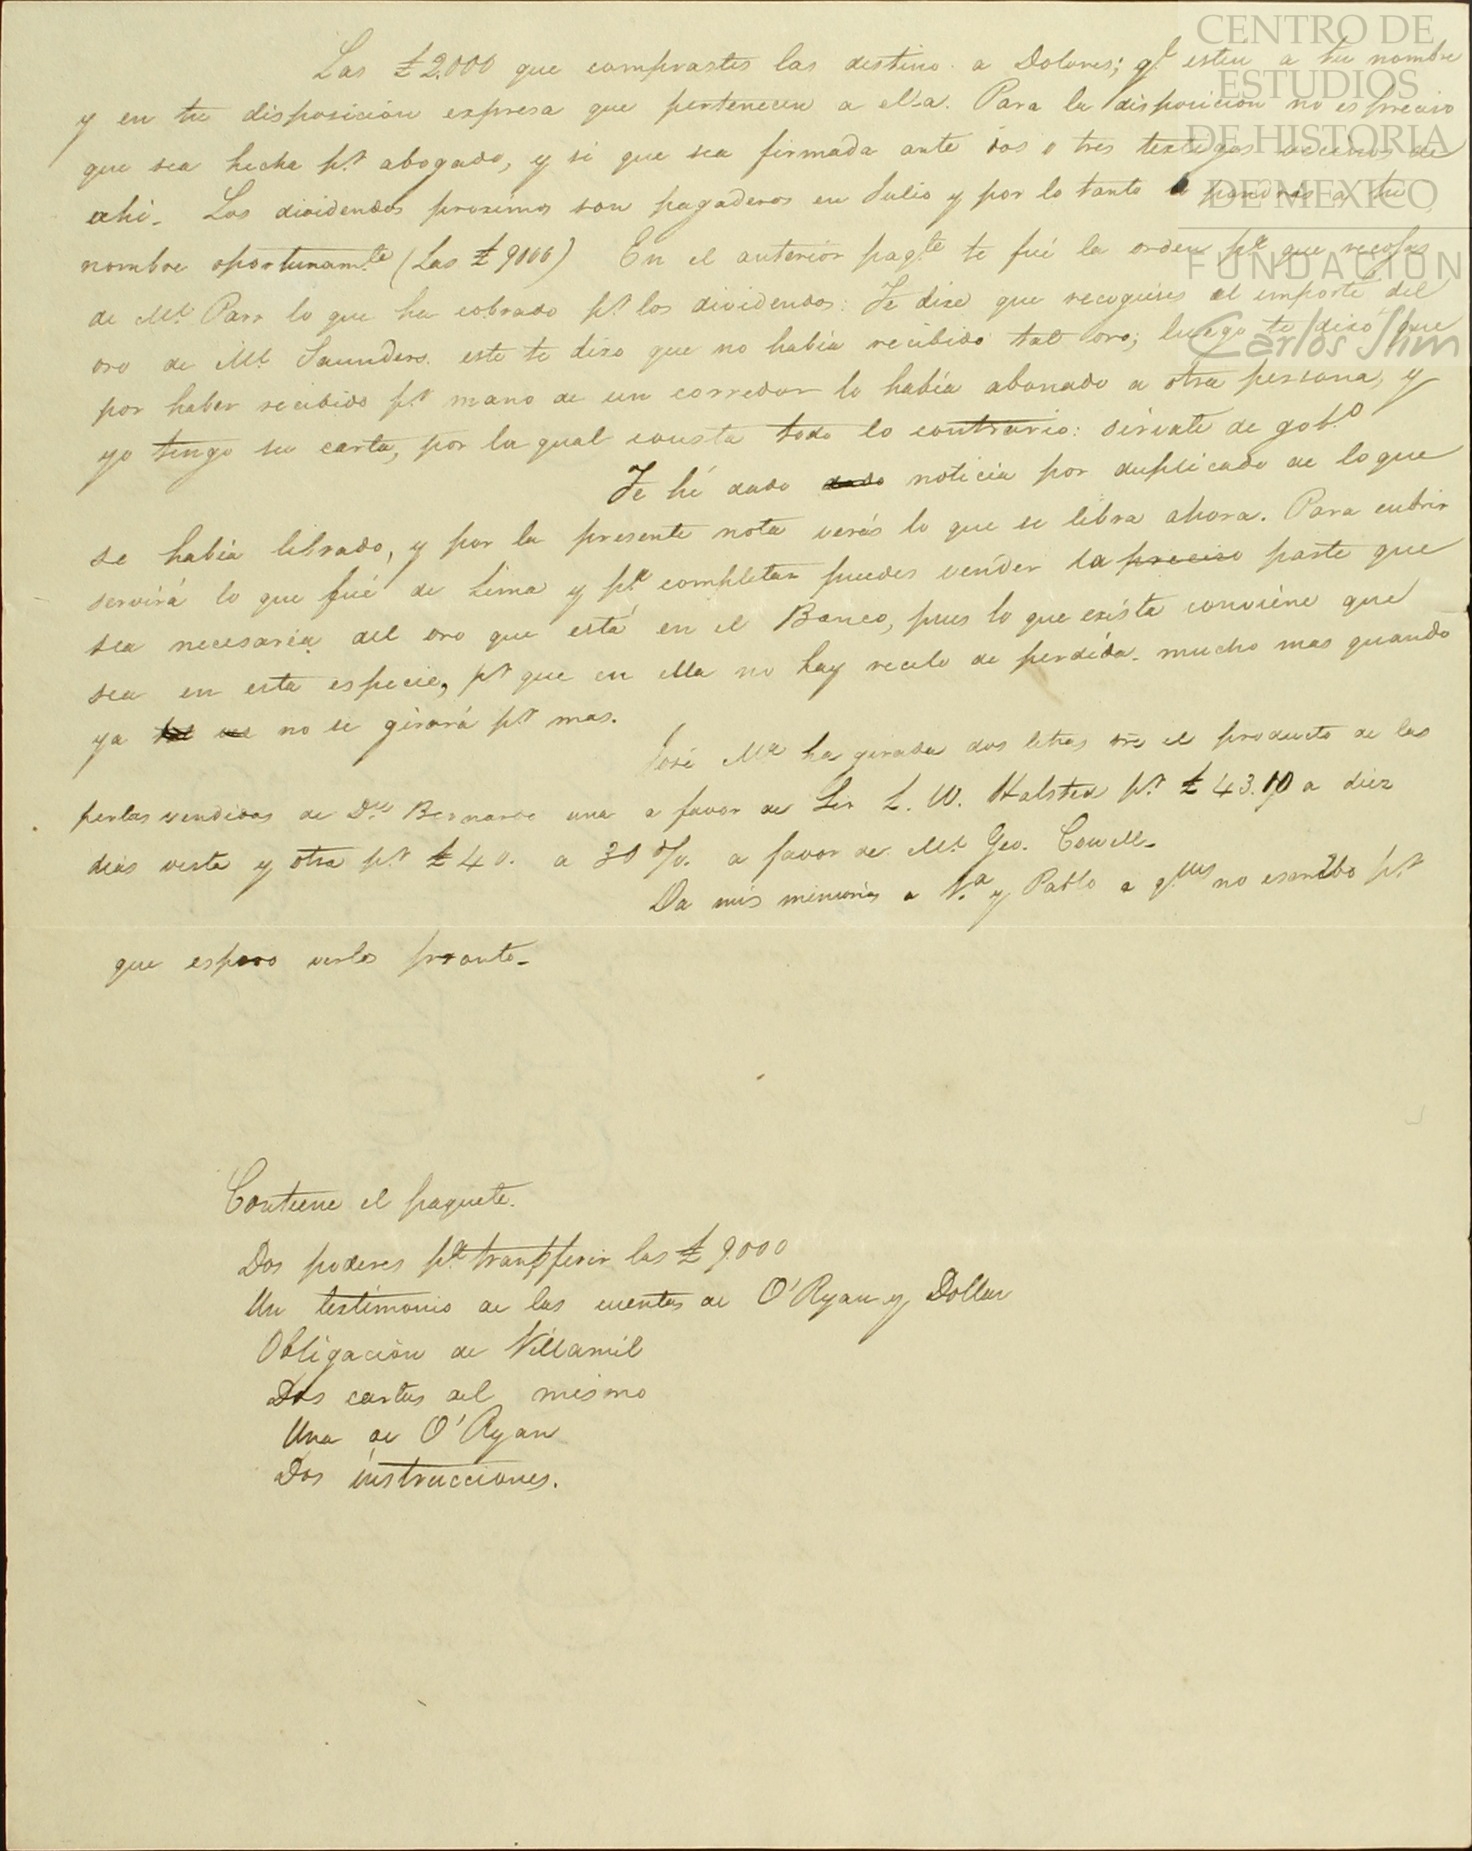 CENTRO DE
ESTUDIOS
DE HISTORIA
DE MEXICO
FUNDACIÓN
Carlos Slim
Las £2.000 que comprastes las destino a Dolores; qᵉ esten a tu nombre
y en tu disposición expresa que pertenecen a ella. Para la disposición no es preciso
que sea hecha pʳ abogado, y si que sea firmada ante dos o tres textigos vecinos de
ahi. Los dividendos proximos son pagaderos en Julio y por lo tanto pondras a tu
nombre oportunamᵗᵉ (Las £9000) En el anterior paqᵗᵉ te fué la orden pᵃ que recojas
de Mʳ Parr lo que ha cobrado pʳ los dividendos: Te dixe que recogieses el importe del
oro de Mʳ Saunders. este te dixo que no había recibido tal oro; luego te dixo que
por haber recibido pʳ mano de un corredor lo había abonado a otra persona, y
yo tengo su carta, por la qual consta todo lo contrario: sirvate de gobⁿᵒ
Te hé dado dado noticia por duplicado de lo que
se había librado, y por la presente nota verás lo que se libra ahora. Para cubrir
servirá lo que fué de Lima y pᵃ completar puedes vender la preciso parte que
sea necesaria del oro que está en el Banco, pues lo que exista conviene que
sea en esta especie, pʳ que en ella no hay recelo de perdida. mucho mas quando
ya no se girará pʳ mas.
José Mᵃ ha girado dos letras sre el producto de las
perlas vendidas de Dⁿ Bernardo una a favor de Sir L. W. Halsted pʳ £43.10 a diez
dias vista y otra pʳ £40. a 30 d/v. a favor de Mʳ Geo. Cowell.
Da mis memorias a V.ᵃ y Pablo a qⁿᵉˢ no escribo pʳ
que espero verlos pronto.
Contiene el paquete.
Dos poderes pᵃ transferir las £9.000
Un testimonio de las cuentas de O'Ryan y Dollar
Obligación de Villamil
Dos cartas del mismo
Una de O'Ryan
Dos instrucciones.